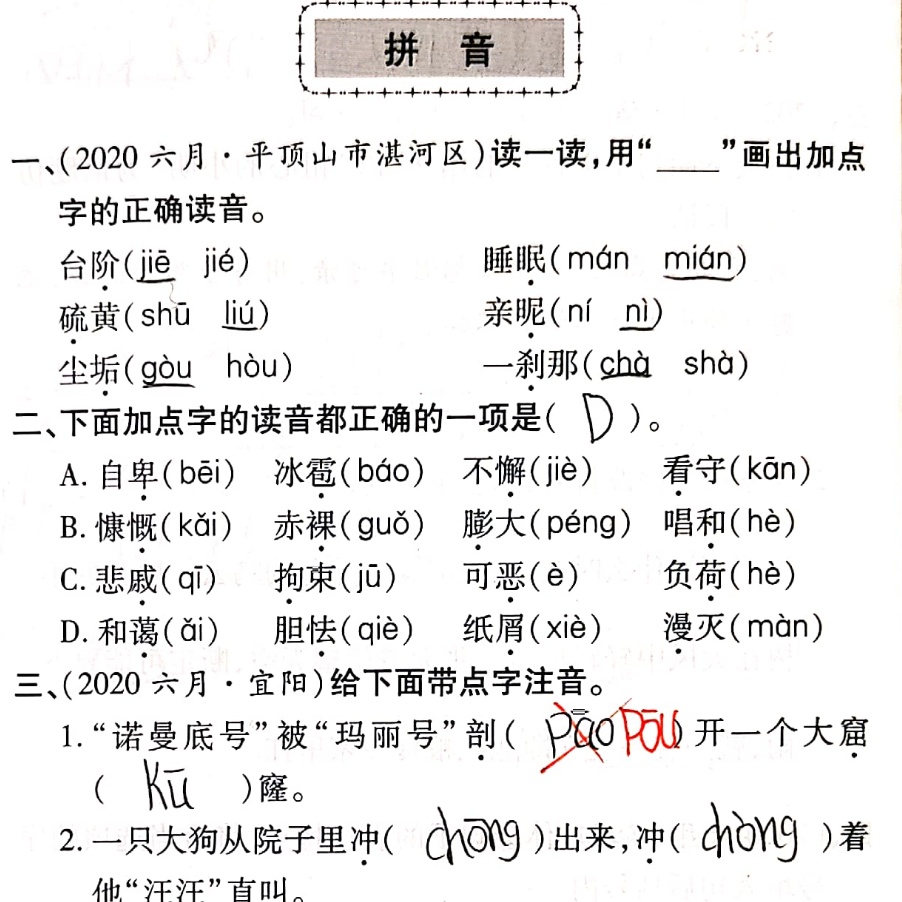 拼 音
一、(2020 六月·平顶山市湛河区)读一读,用“____”画出加点
字的正确读音。
台阶(jiē jié) 睡眠(mán mián)
硫黄(shū liú) 亲昵(ní nì)
尘垢(gòu hòu) 一刹那(chà shà)
二、下面加点字的读音都正确的一项是( D )。
A. 自卑(bēi) 冰雹(báo) 不懈(jiè) 看守(kān)
B. 慷慨(kǎi) 赤裸(guǒ) 膨大(péng) 唱和(hè)
C. 悲戚(qī) 拘束(jū) 可恶(è) 负荷(hè)
D. 和蔼(ǎi) 胆怯(qiè) 纸屑(xiè) 漫灭(màn)
三、(2020 六月·宜阳)给下面带点字注音。
1. “诺曼底号”被“玛丽号”剖( pāo pōu )开一个大窟
( kū )窿。
2. 一只大狗从院子里冲( chōng )出来,冲( chòng )着
他“汪汪”直叫。